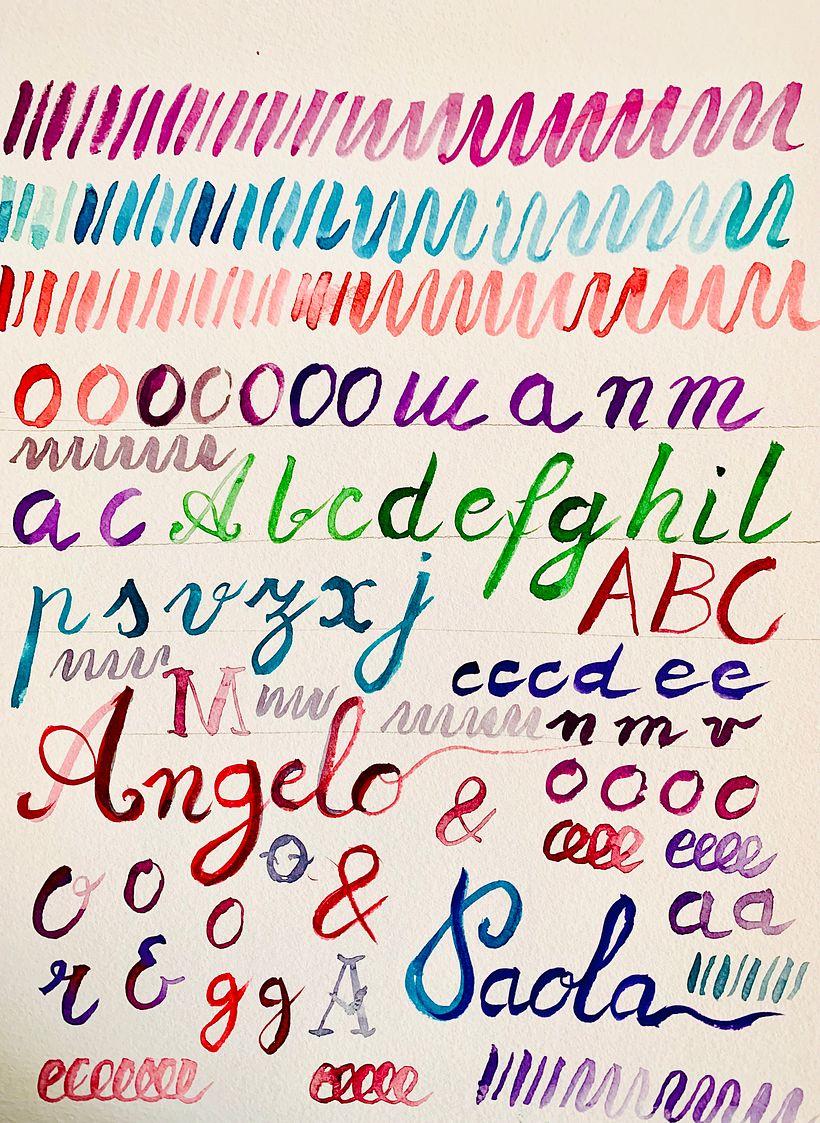 o o o o o o o u a n m
a c A b c d e f g h i l
p s v z x j A B C
c c c d e e
M n m v
Angelo
& o o o o
o & eeee eeee
o o o a a
r E g g A Paola
eeeeeeee eeeee